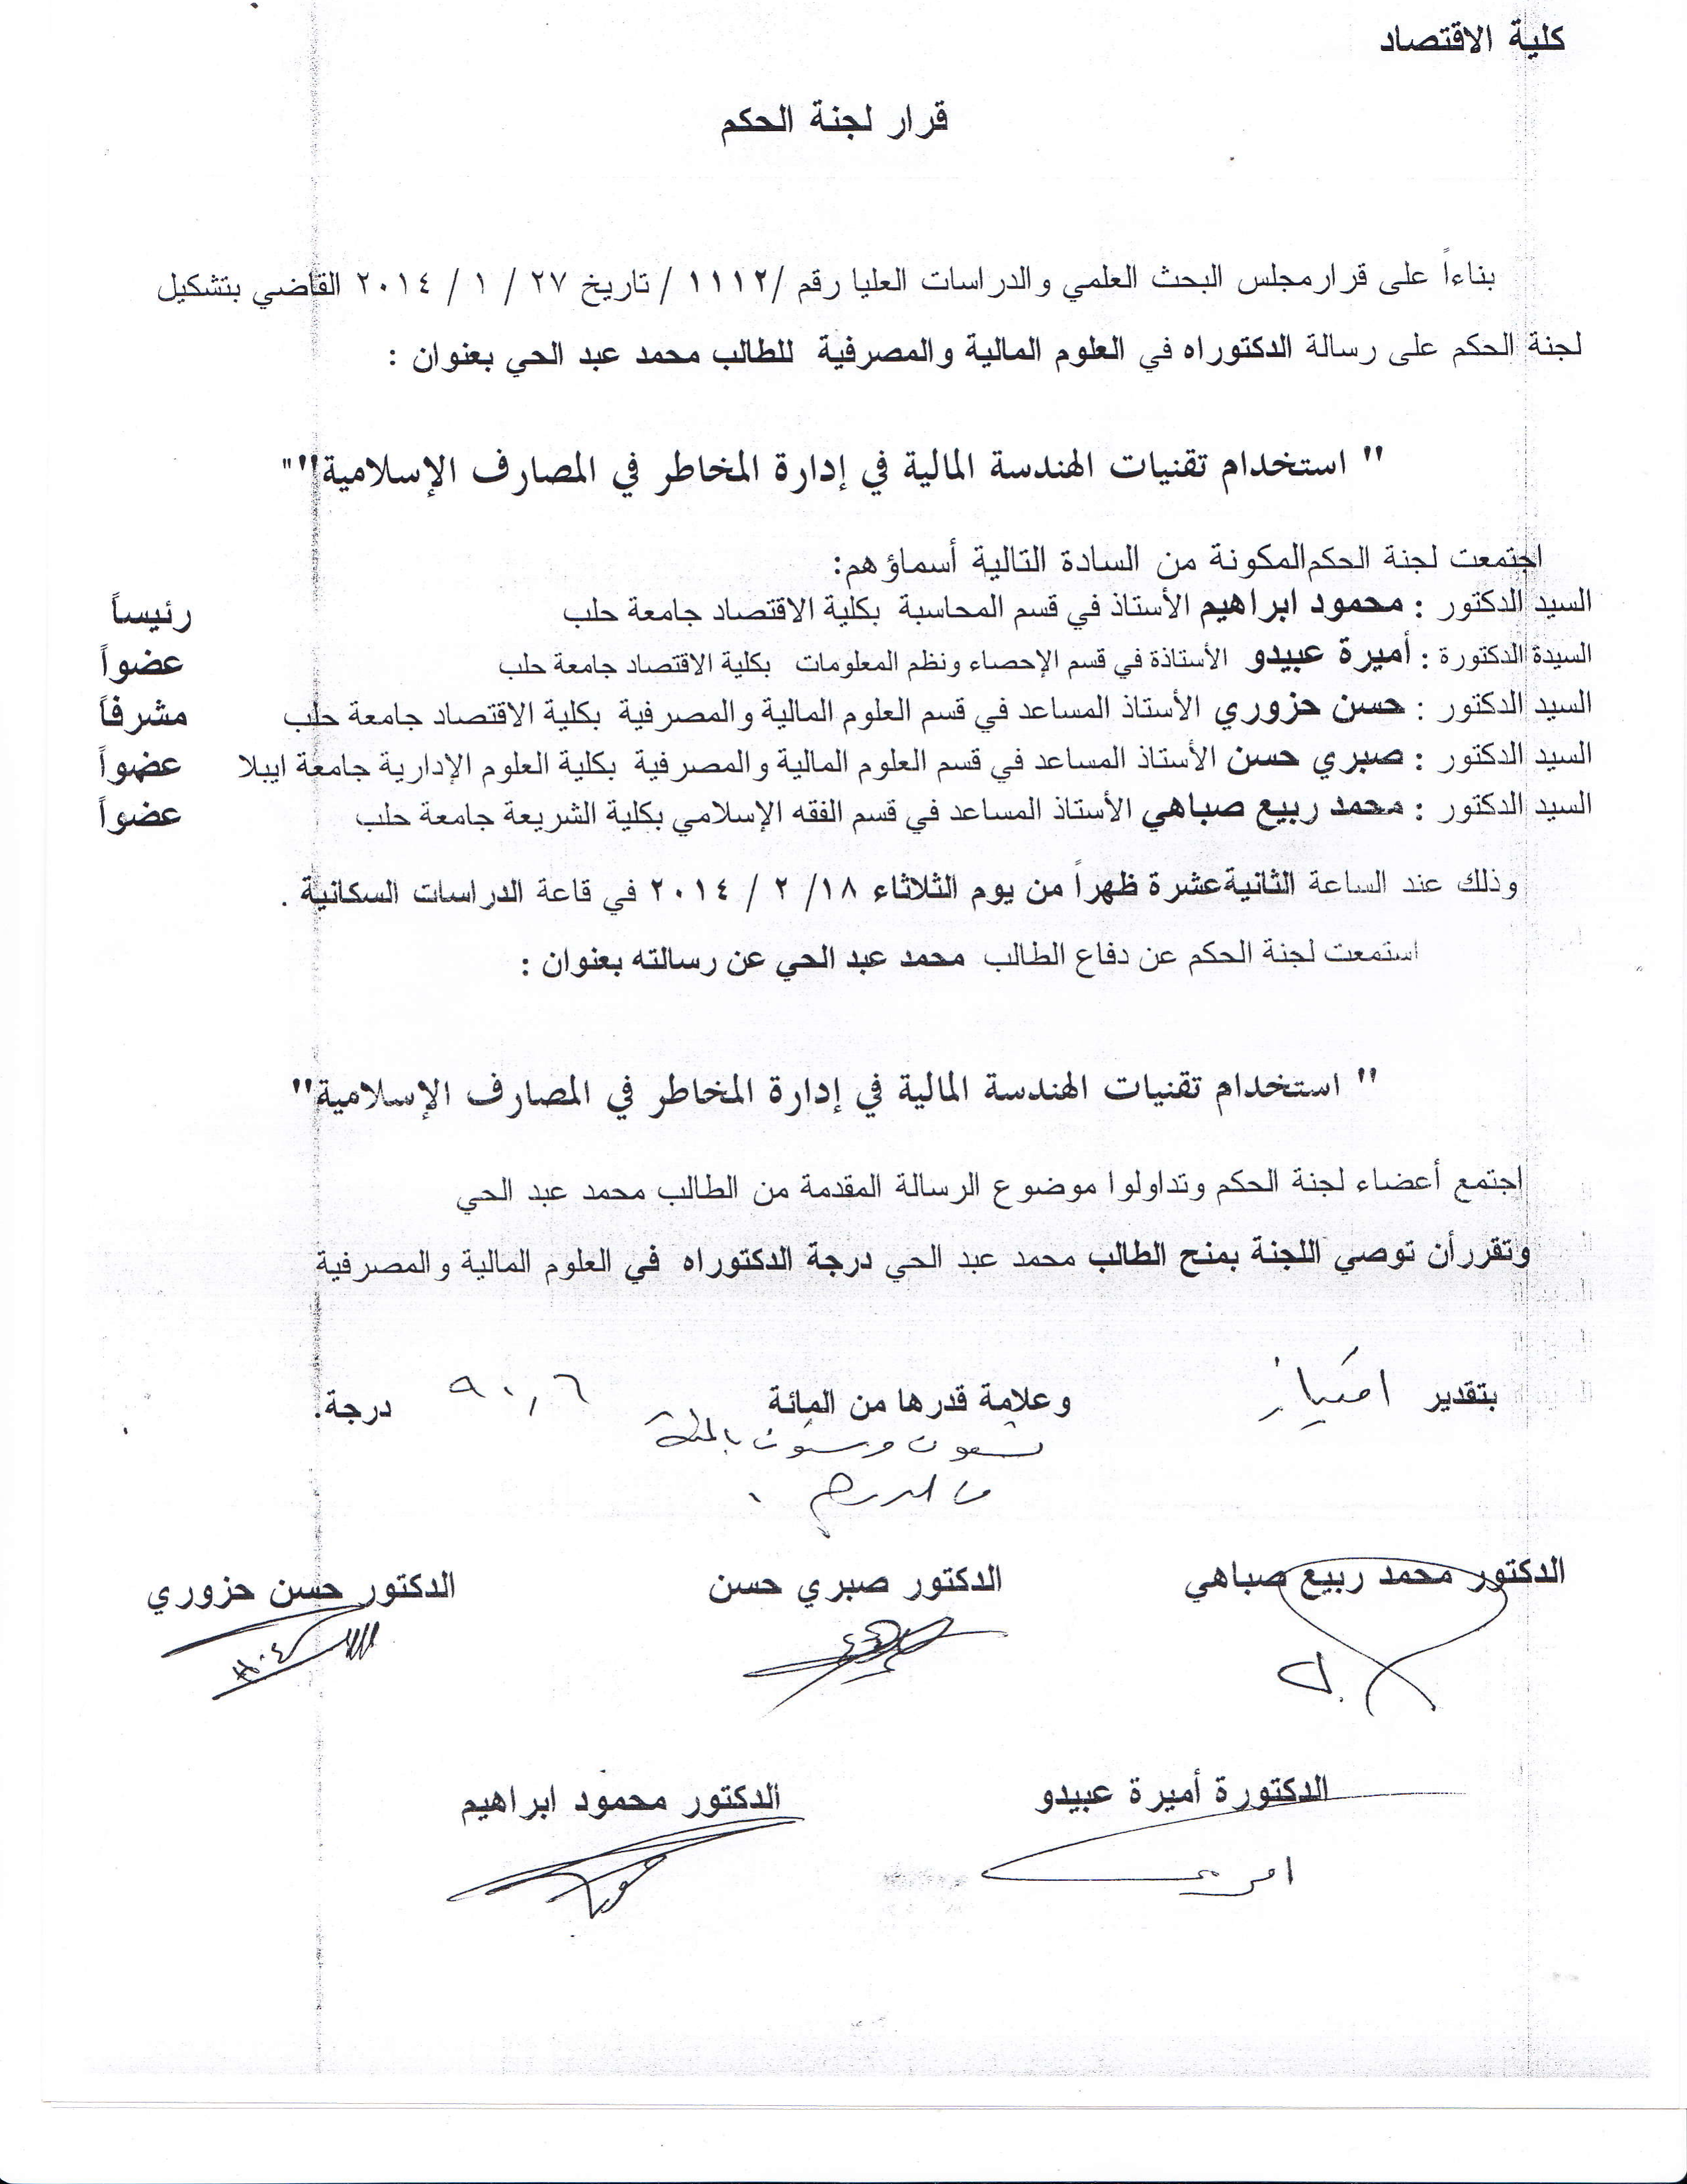 كلية الاقتصاد
قرار لجنة الحكم
بناءاً على قرار مجلس البحث العلمي والدراسات العليا رقم /١١١٢ / تاريخ ٢٧ / ١ / ٢٠١٤ القاضي بتشكيل
لجنة الحكم على رسالة الدكتوراه في العلوم المالية والمصرفية للطالب محمد عبد الحي بعنوان :
" استخدام تقنيات الهندسة المالية في إدارة المخاطر في المصارف الإسلامية""
اجتمعت لجنة الحكم المكونة من السادة التالية أسماؤهم:
السيد الدكتور : محمود ابراهيم الأستاذ في قسم المحاسبة بكلية الاقتصاد جامعة حلب رئيساً
السيدة الدكتورة : أميرة عبيدو الأستاذة في قسم الإحصاء ونظم المعلومات بكلية الاقتصاد جامعة حلب عضواً
السيد الدكتور : حسن حزوري الأستاذ المساعد في قسم العلوم المالية والمصرفية بكلية الاقتصاد جامعة حلب مشرفاً
السيد الدكتور : صبري حسن الأستاذ المساعد في قسم العلوم المالية والمصرفية بكلية العلوم الإدارية جامعة ايبلا عضواً
السيد الدكتور : محمد ربيع صباهي الأستاذ المساعد في قسم الفقه الإسلامي بكلية الشريعة جامعة حلب عضواً
وذلك عند الساعة الثانية عشرة ظهراً من يوم الثلاثاء ١٨/ ٢ / ٢٠١٤ في قاعة الدراسات السكانية .
استمعت لجنة الحكم عن دفاع الطالب محمد عبد الحي عن رسالته بعنوان :
" استخدام تقنيات الهندسة المالية في إدارة المخاطر في المصارف الإسلامية"
اجتمع أعضاء لجنة الحكم وتداولوا موضوع الرسالة المقدمة من الطالب محمد عبد الحي
وتقرر أن توصي اللجنة بمنح الطالب محمد عبد الحي درجة الدكتوراه في العلوم المالية والمصرفية
بتقدير امتياز وعلامة قدرها من المائة ٩٠,٦ درجة.
تسعون وستون بالمئة
من الدرجة .
الدكتور محمد ربيع صباهي الدكتور صبري حسن الدكتور حسن حزوري
الدكتورة أميرة عبيدو الدكتور محمود ابراهيم